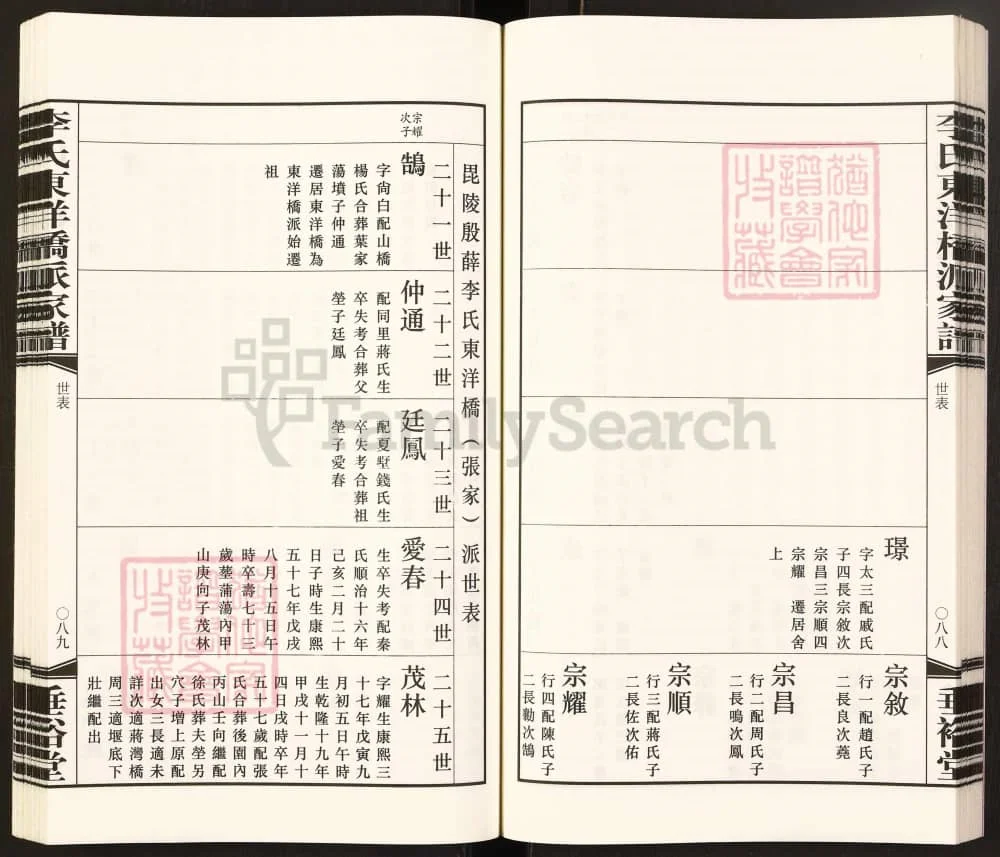 李氏東洋橋派家譜
世表
〇八八
垂裕堂
璟
字太三配戚氏
子四長宗敘次
宗昌三宗順四
宗耀　遷居舍
上
宗敘
行一配趙氏子
二長良次蕘
宗昌
行二配周氏子
二長鳴次鳳
宗順
行三配蔣氏子
二長佐次佑
宗耀
行四配陳氏子
二長勸次鵠
毘陵殷薛李氏東洋橋（張家）派世表
二十一世
宗耀
次子
鵠
字尙白配山橋
楊氏合葬葉家
蕩墳子仲通
遷居東洋橋為
東洋橋派始遷
祖
二十二世
仲通
配同里蔣氏生
卒失考合葬父
塋子廷鳳
二十三世
廷鳳
配夏墅錢氏生
卒失考合葬祖
塋子愛春
二十四世
愛春
生卒失考配秦
氏順治十六年
己亥二月二十
日子時生康熙
五十七年戊戌
八月十五日午
時卒壽七十三
歲塟蒲蕩內甲
山庚向子茂林
二十五世
茂林
字耀生康熙三
十七年戊寅九
月初五日午時
生乾隆十九年
甲戌十一月十
四日戌時卒年
五十七歲配張
氏合葬後園內
丙山壬向繼配
徐氏葬夫塋另
穴子增上原配
出女三長適未
詳次適蔣灣橋
周三適堰底下
壯繼配出
李氏東洋橋派家譜
世表
〇八九
垂裕堂
FamilySearch